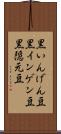 黒いんげん豆
黒インゲン豆
黒隠元豆